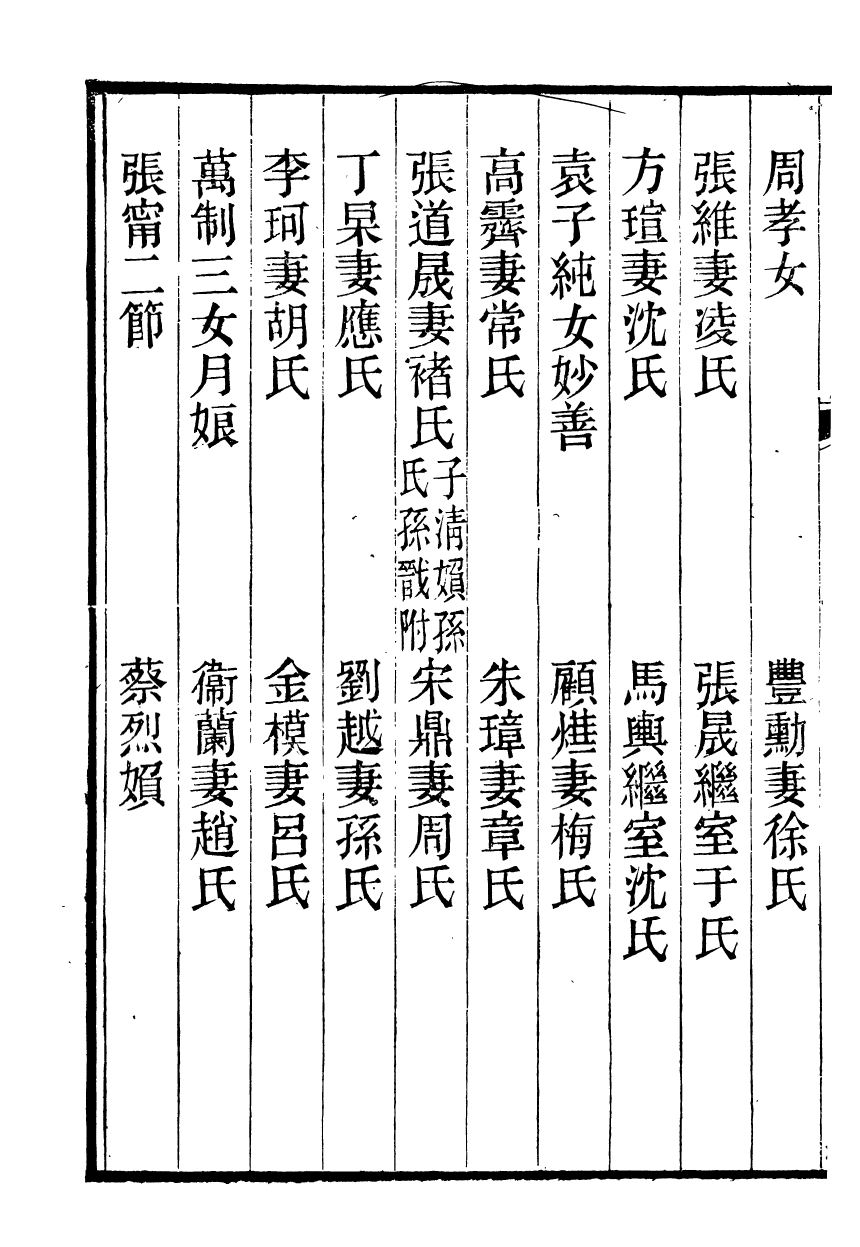 周孝女　豐勳妻徐氏
張維妻凌氏　張晟繼室于氏
方瑄妻沈氏　馬輿繼室沈氏
袁子純女妙善　顧𤓎妻梅氏
高霽妻常氏　朱璋妻章氏
張道晟妻褚氏子清媍孫氏孫戩附　宋鼎妻周氏
丁杲妻應氏　劉越妻孫氏
李珂妻胡氏　金模妻呂氏
萬制三女月娘　衞蘭妻趙氏
張甯二節　蔡烈媍